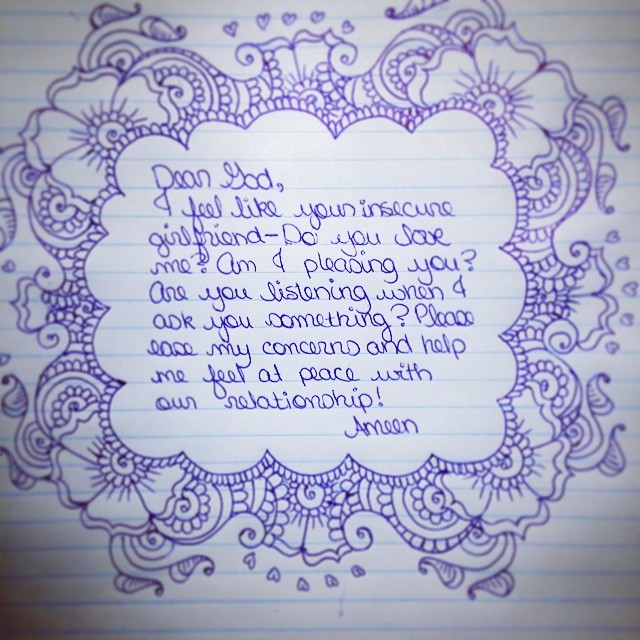 Dear God,
I feel like your insecure
girlfriend-Do you love
me? Am I pleasing you?
Are you listening when I
ask you something? Please
ease my concerns and help
me feel at peace with
our relationship!
Ameen